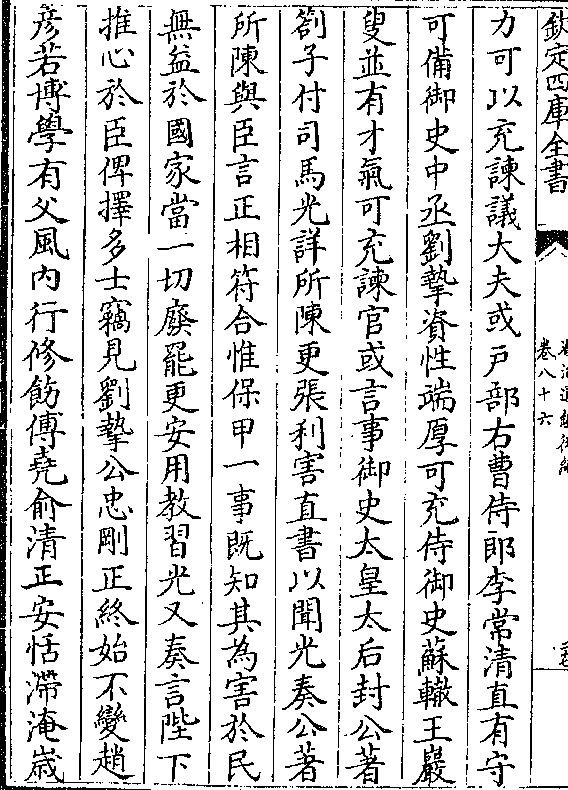 欽定四庫全書
卷八十六
力可以充諫議大夫或戸部右曹侍郎李常清直有守
可備御史中丞劉摯資性端厚可充侍御史蘇轍王巖
叟並有才氣可充諫官或言事御史太皇太后封公著
劄子付司馬光詳所陳更張利害直書以聞光奏公著
所陳與臣言正相符合惟保甲一事既知其為害於民
無益於國家當一切廢罷更安用教習光又奏言陛下
推心於臣俾擇多士竊見劉摯公忠剛正終始不變趙
彦若博學有父風内行修飭傅堯俞清正安恬滯淹歳